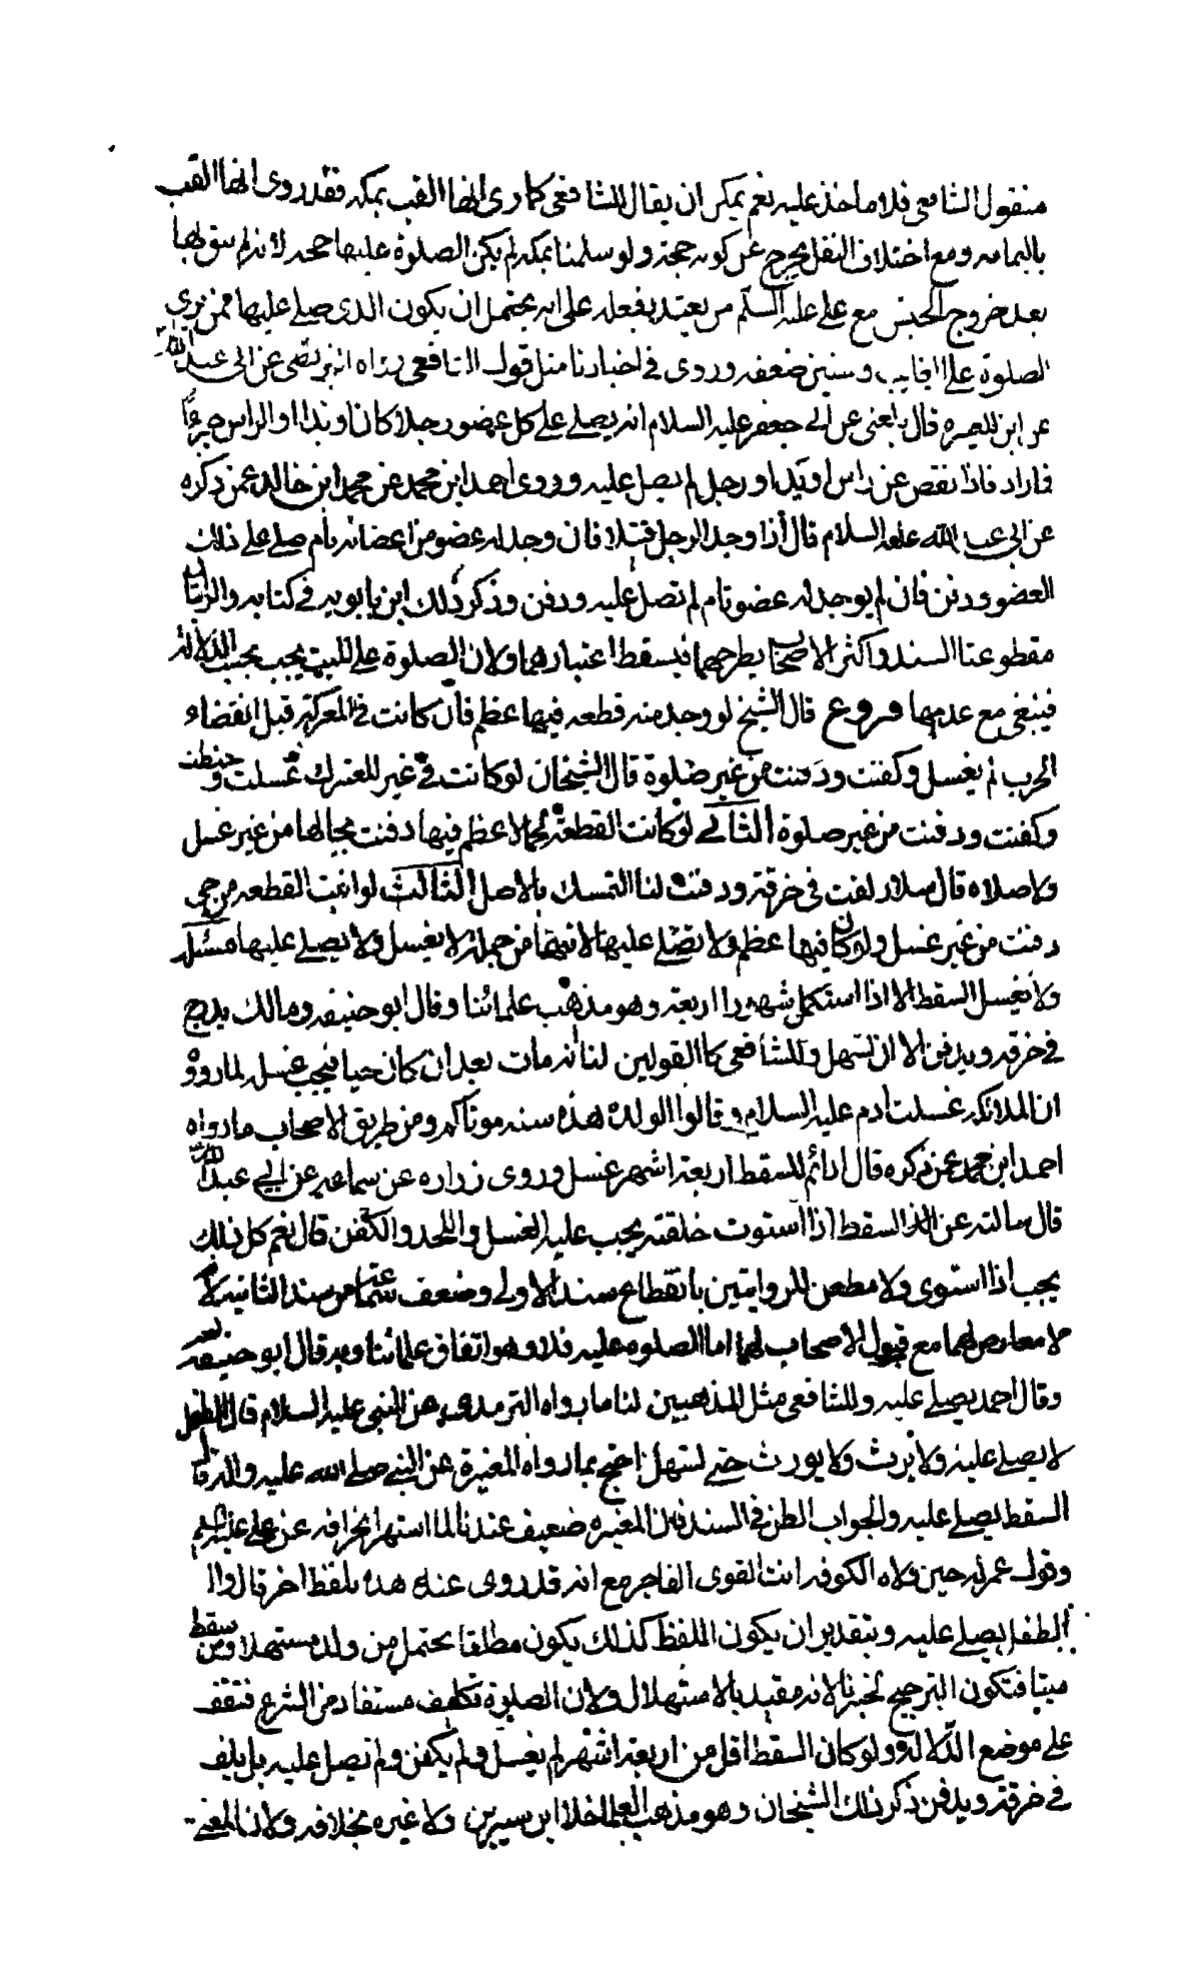 منقول الشافعي فلا مأخذ عليه نعم يمكن ان يقال للشافعي كما روى انها القيت بمكه فقد روى انها القيت
باليمامه ومع اختلاف النقل يخرج عن كونه حجة ولو سلمنا بمكه لم يكن الصلوة عليها حجه لانه لم يبق بها
بعد خروج الجيش مع علي عليه السلم من يعتد بفعله على انه يحتمل ان يكون الذى صلى عليها ممن يرى
الصلوة على الغايب وسنبين ضعفه وروى في اخبارنا مثل قول الشافعي رواه البزنطى عن ابى عبد الله
عن ابن المغيره قال بلغنى عن ابي جعفر عليه السلام انه يصلي على كل عضو رجلا كان او يدا او الراس جزءا
فما زاد فاذا نقص عن راس او يد او رجل لم يصل عليه وروى احمد ابن محمد عن محمد ابن خالد عمن ذكره
عن ابي عبد الله عليه السلام قال اذا وجد الرجل قتيلا فان وجد له عضو من اعضائه تام صلى على ذلك
العضو ودفن فان لم يوجد له عضو تام لم تصل عليه ودفن وذكر ذلك ابن بابويه في كتابه والروايتان
مقطوعتا السند واكثر الاصحاب يطرحهما فيسقط اعتبارهما ولان الصلوة على الميت يجب بحسب الدلالة
فينتفي مع عدمها فروع قال الشيخ لو وجد منه قطعه فيها عظم فان كانت في المعركة قبل انقضاء
الحرب لم يغسل وكفنت ودفنت من غير صلوة قال الشيخان لو كانت في غير المعترك غسلت وحنطت
وكفنت ودفنت من غير صلوة الثاني لو كانت القطعة مما لا عظم فيها دفنت بحالها من غير غسل
ولا صلاه قال سلار لفت في خرقة ودفنت لنا التمسك بالاصل الثالث لو ابينت القطعه من حي
دفنت من غير غسل ولو كان فيها عظم ولا يصلى عليها لانها من جملة لا يغسل ولا يصلى عليها مسئله
ولا يغسل السقط الا اذا استكمل شهورا اربعة وهو مذهب علمائنا وقال ابو حنيفه ومالك يدرج
في خرقه ويدفن الا ان يستهل وللشافعي كالقولين لنا انه مات بعد ان كان حيا فيجب غسله لما رووه
ان الملائكه غسلت ادم عليه السلام وقالوا لولده هذه سنه موتاكم ومن طريق الاصحاب ما رواه
احمد ابن محمد عمن ذكره قال اذا تم للسقط اربعة اشهر غسل وروى زراره عن سماعه عن ابي عبد الله
قال سالته عن السقط اذا استوت خلقته يجب عليه الغسل واللحد والكفن قال نعم كل ذلك
يجب اذا استوى ولا مطعن للروايتين بانقطاع سند الاولى وضعف سماعة من سند الثانيه لانه
لا معارض لهما مع قبول الاصحاب لهما اما الصلوه عليه فلا وهو اتفاق علمائنا وبه قال ابو حنيفه
وقال احمد يصلي عليه وللشافعي مثل المذهبين لنا ما رواه الترمدى عن النبى عليه السلام قال الطفل
لا يصلي عليه ولا يرث ولا يورث حتى يستهل احتج بما رواه المغيرة عن النبي صلى الله عليه واله قال
السقط يصلي عليه والجواب الطعن في السند فان المغيره ضعيف عندنا لما اشتهر انحرافه عن علي عليه السلم
وقول عمر له حين ولاه الكوفه انت القوى الفاجر مع انه قد روى عنه هذه بلفظ اخر قال والد
الطفل يصلي عليه وبتقدير ان يكون اللفظ كذلك يكون مطلقا يحتمل من ولد مستهلا ومن سقط
ميتا فيكون الترجيح لخبرنا لانه مقيد بالاستهلال ولان الصلوة تكليف مستفاد من الشرع فتقف
على موضع الدلالة ولو كان السقط اقل من اربعة اشهر لم يغسل ولم يكفن ولم تصل عليه بل يلف
في خرقة ويدفن ذكر ذلك الشيخان وهو مذهب العلما خلا ابن سيرين ولا غيره بخلافه ولان المعنى